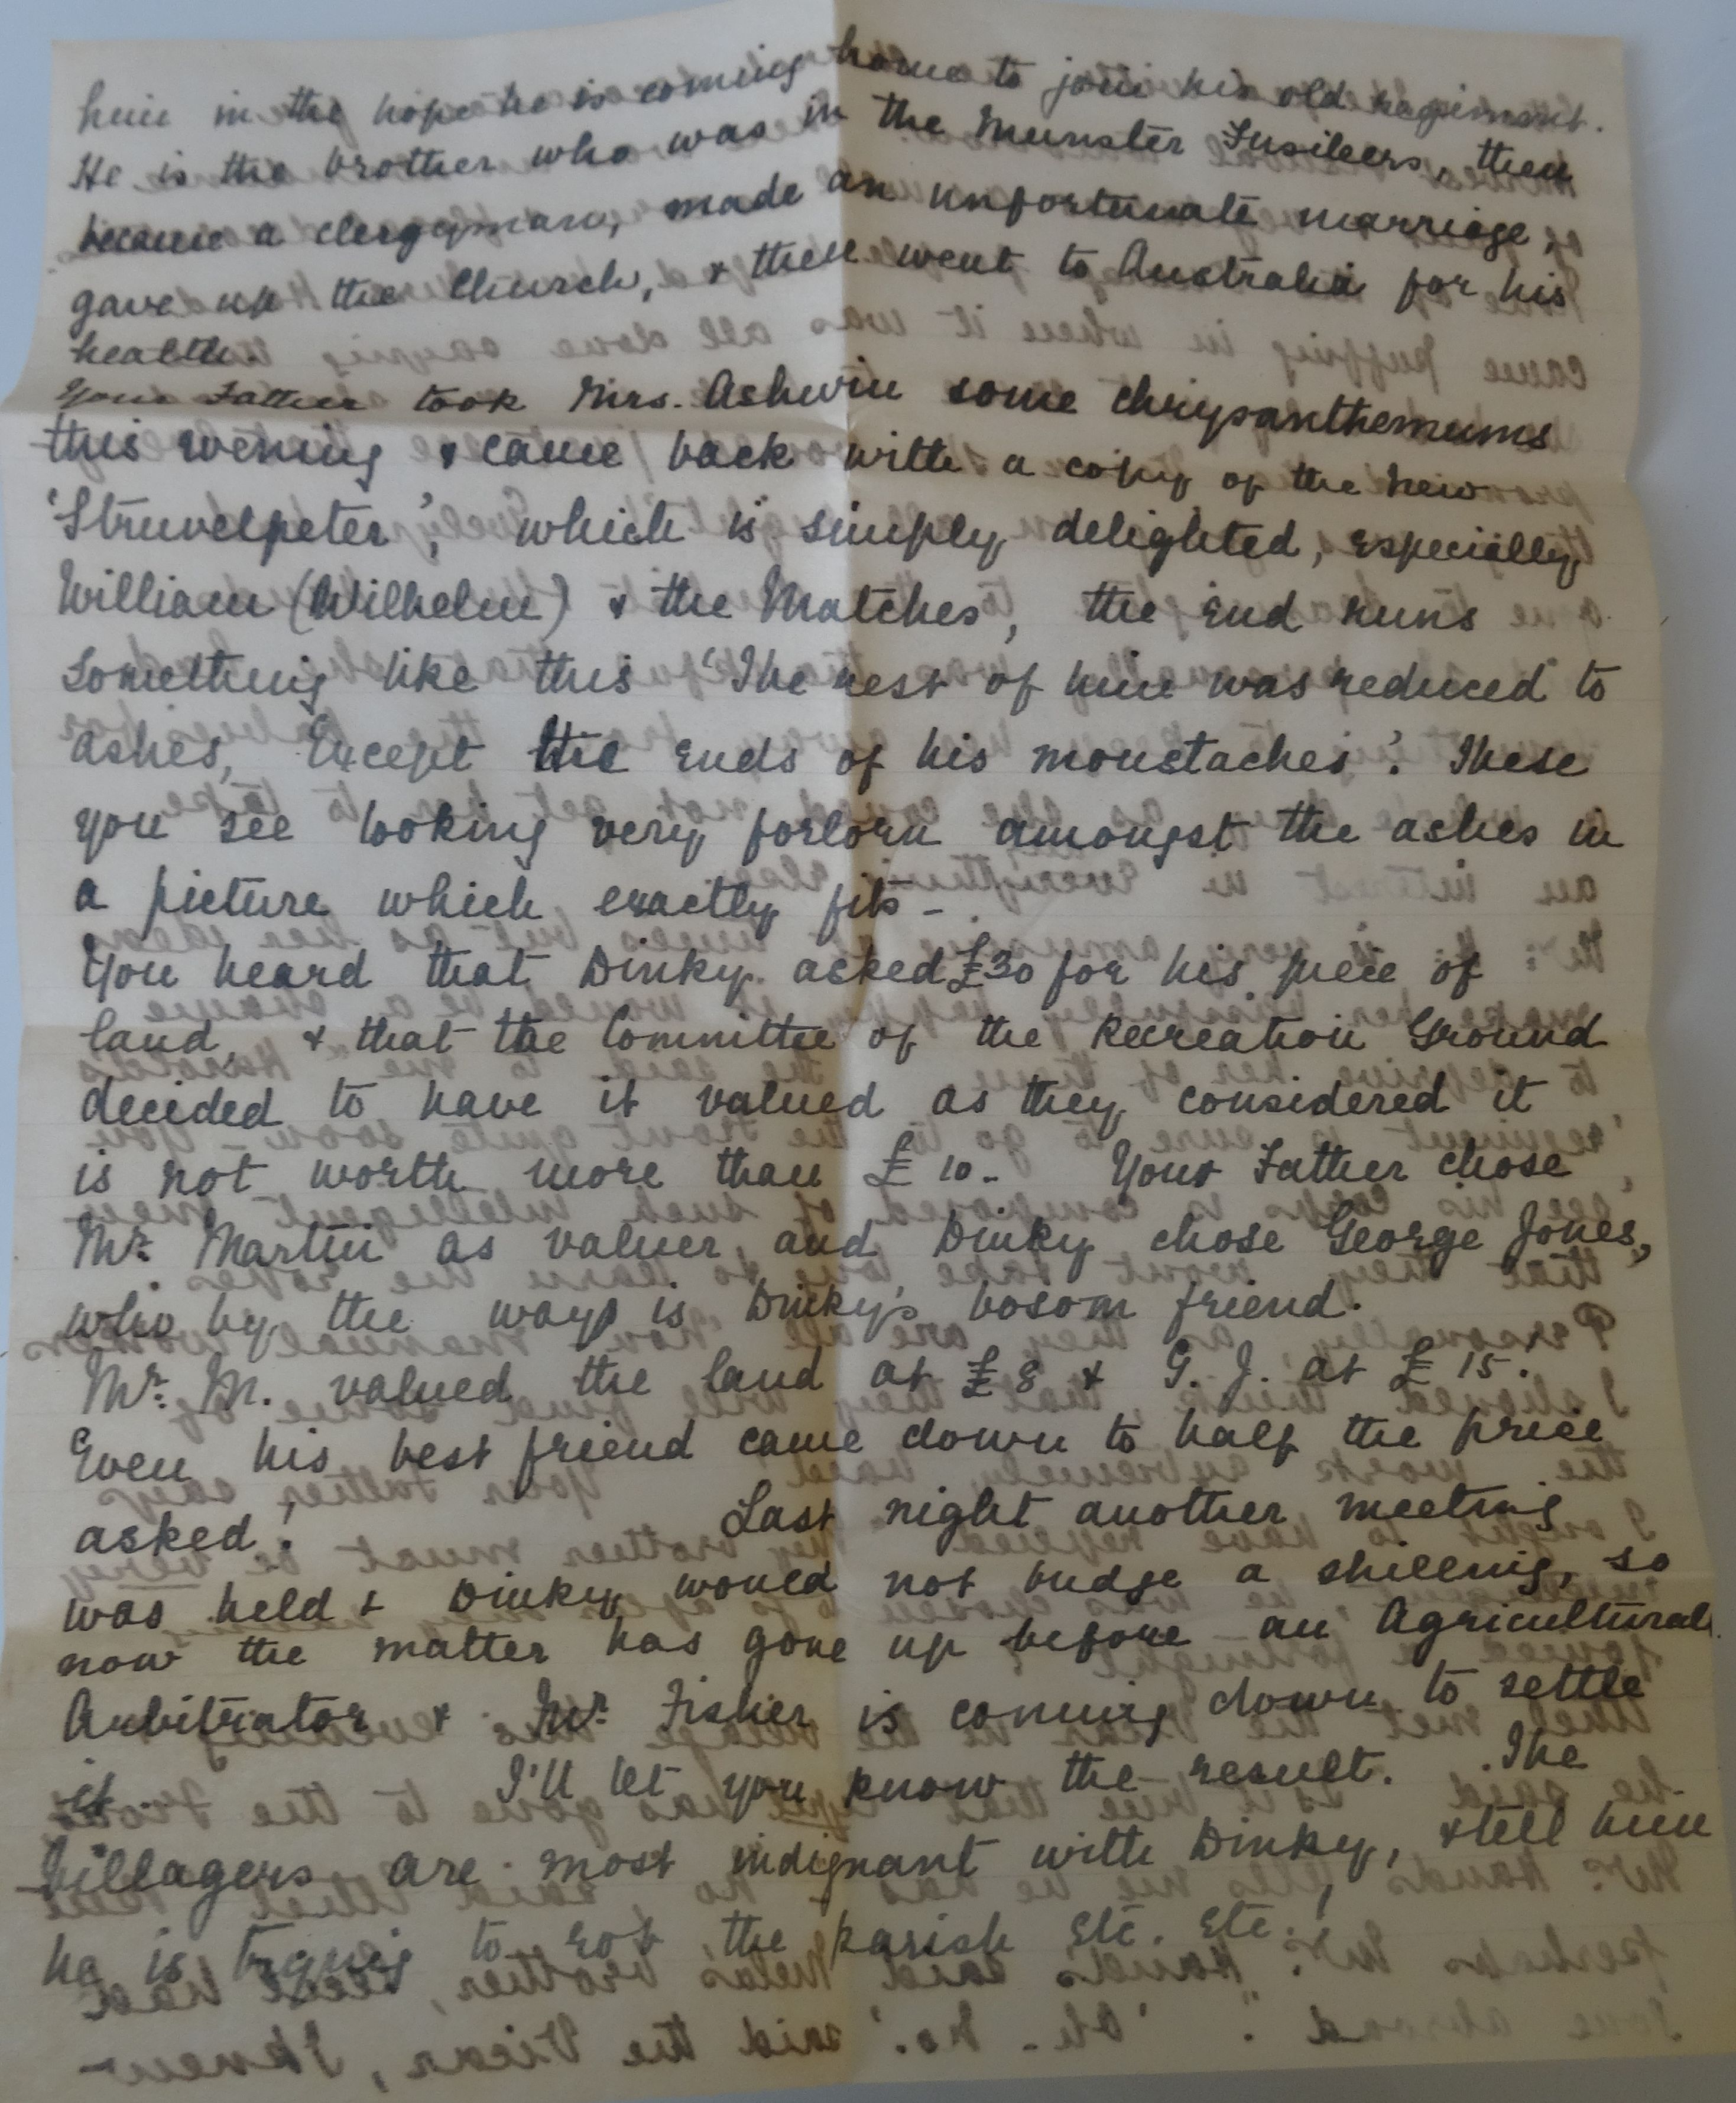 him in the hope he is coming home to join his old regiment.
He is the brother who was in the Munster Fusileers, then
became a clergyman, made an unfortunate marriage,
gave up the Church, & then went to Australia for his
health.
Your Father took Mrs. Ashwin some chrysanthemums
this evening & came back with a copy of the new
'Struvelpeter', which is simply delighted, especially
William (Wilhelm) & the Matches, the end runs
something like this 'The rest of him was reduced to
ashes, Except the ends of his moustaches'. These
you see looking very forlorn amongst the ashes in
a picture which exactly fits -
You heard that Dinky asked £30 for his piece of
land, & that the Committee of the Recreation Ground
decided to have it valued as they considered it
is not worth more than £10. Your Father chose
Mr. Martin as valuer, and Dinky chose George Jones,
who by the ways is Dinky's bosom friend.
Mr. M. valued the land at £8 & G. J. at £15.
Even his best friend came down to half the price
asked! Last night another meeting
was held & Dinky would not budge a shilling, so
now the matter has gone up before an Agricultural
Arbitrator & Mr. Fisher is coming down to settle
it. I'll let you know the result. The
Villagers are most indignant with Dinky, & tell him
he is trying to rob the parish etc. etc.!